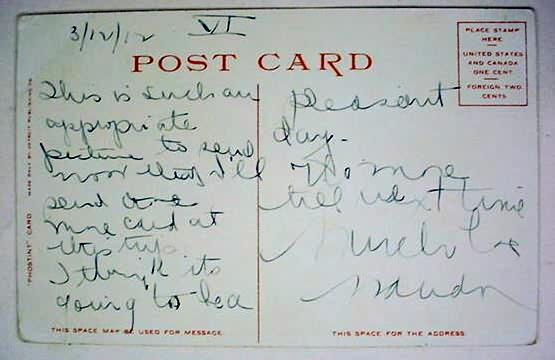 3/12/12
VI
POST CARD
PLACE STAMP
HERE
UNITED STATES
AND CANADA
ONE CENT
FOREIGN TWO
CENTS
This is such an
appropriate
picture to send
now that I'll
send one
more card at
this trip
I think its
going to be a
pleasant
day.
No more
till next time
Much love
"PHOSTINT" CARD
THIS SPACE MAY BE USED FOR MESSAGE.
THIS SPACE FOR THE ADDRESS.